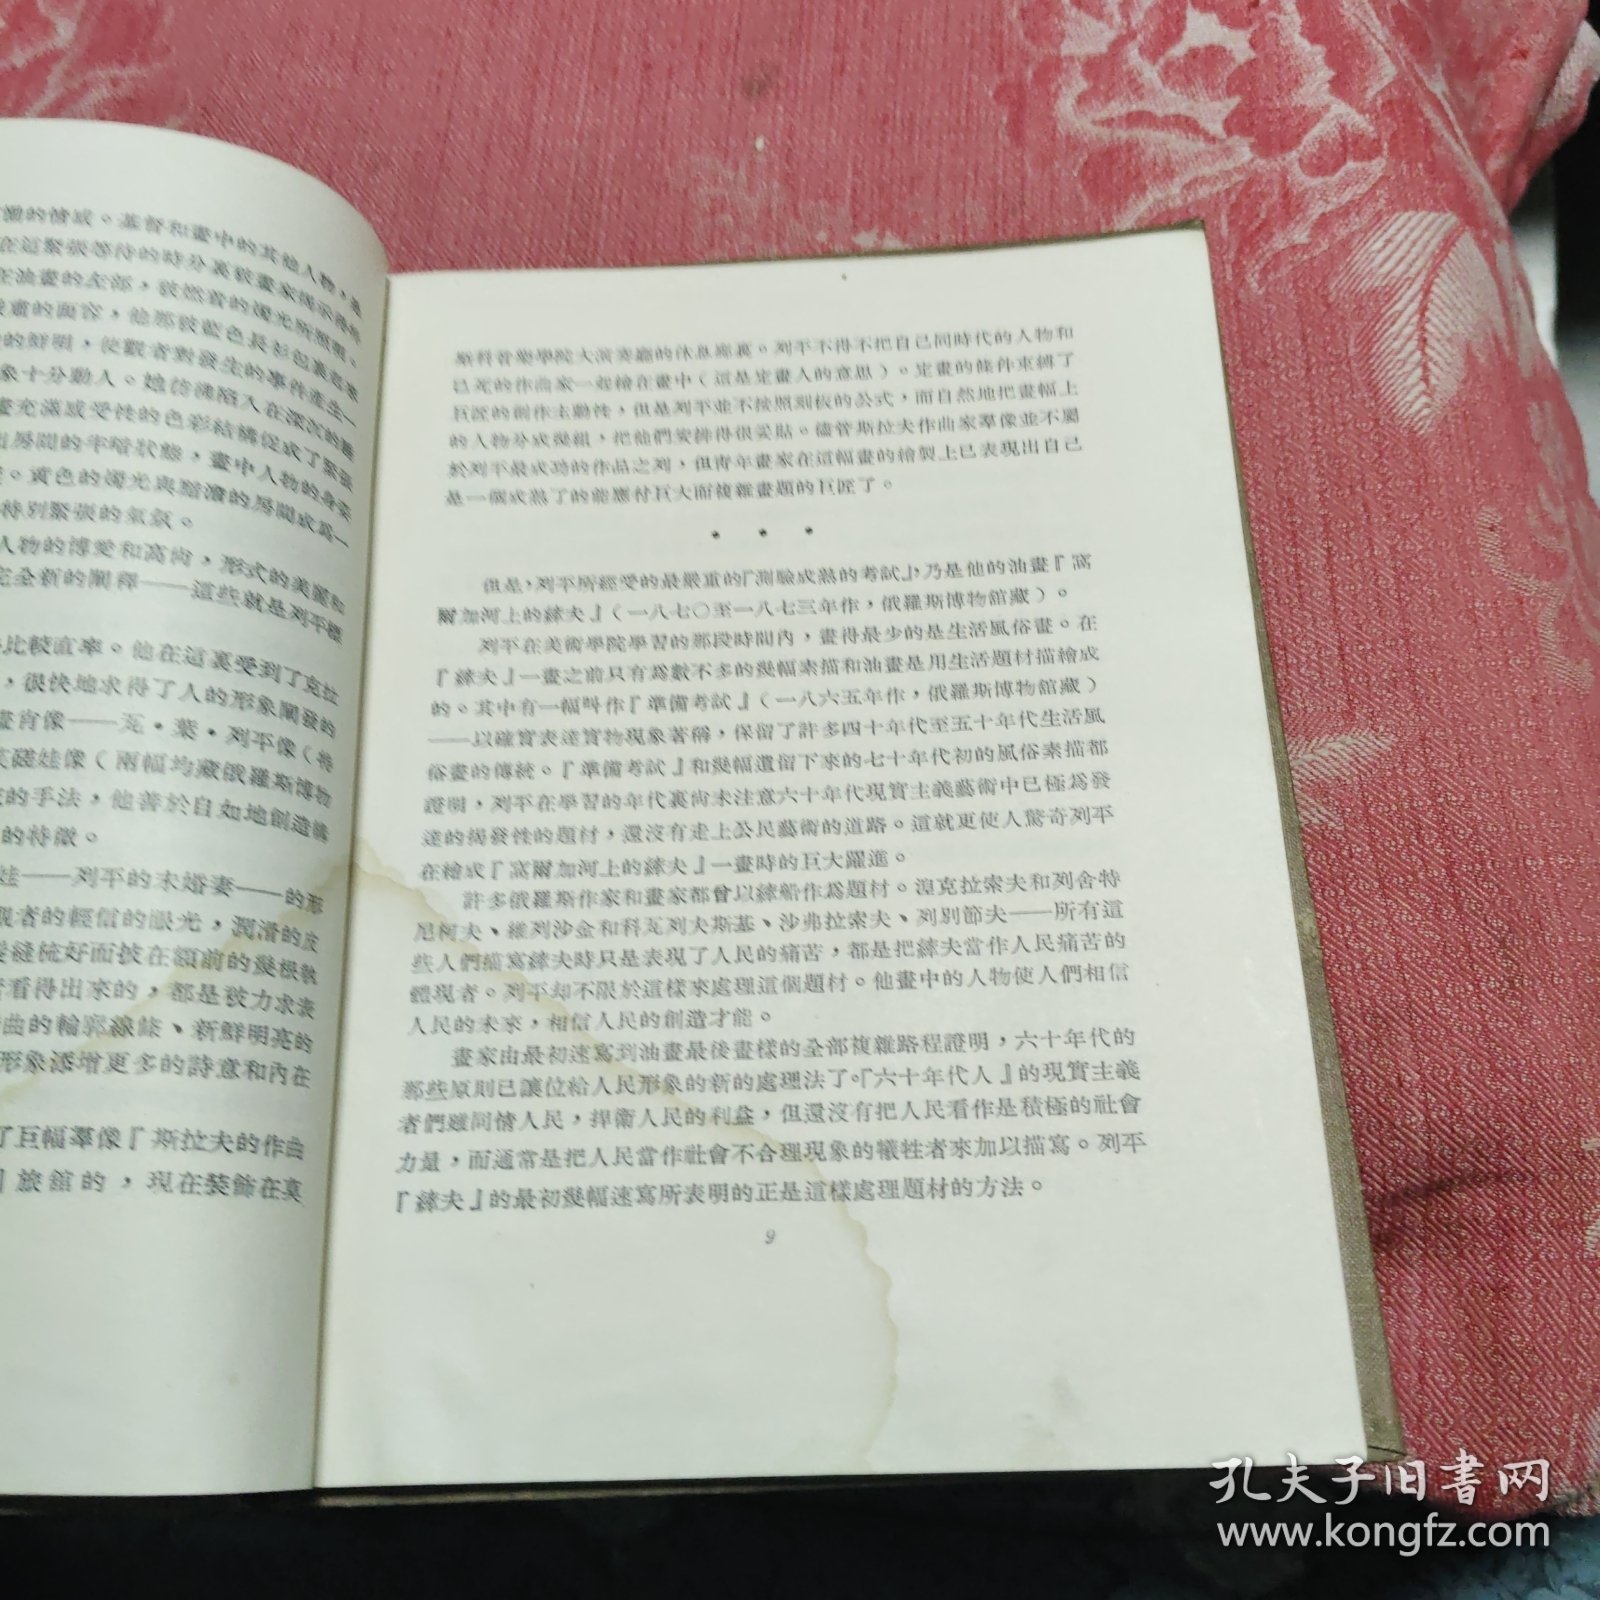 備的情感。基督和畫中的其他人物,是
在這緊張等待的時分裏被畫家揭示得
在油畫的左部,被燃着的燭光所照明。
肅的面容,他那被藍色長衫包裹
的鮮明,使觀者對發生的事件產生一
象十分動人。她彷彿陷入在深沉的
畫充滿感受性的色彩結構促成了緊張
房間的半暗狀態,畫中人物的身姿
。黃色的燭光與暗澹的房間成爲一
特別緊張的氣氛。
人物的博愛和高尙,形式的美麗和
完全新的闡釋——這些就是列平標
比較直率。他在這裏受到了克拉
,很快地求得了人的形象闡發的
畫肖像——瓦·葉·列平像(特
磋娃像(兩幅均藏俄羅斯博物
的手法,他善於自如地創造
的特徵。
娃——列平的未婚妻——的形
觀者的輕信的眼光,潤滑的皮
縫梳好而披在額前的幾根
看得出來的,都是被力求表
曲的輪廓線條、新鮮明亮的
形象添增更多的詩意和內在
了巨幅羣像『斯拉夫的作曲
』旅館的,現在裝飾在莫
斯科音樂學院大演奏廳的休息廊裏。列平不得不把自己同時代的人物和
已死的作曲家一起繪在畫中(這是定畫人的意思)。定畫的條件束縛了
巨匠的創作主動性,但是列平並不按照刻板的公式,而自然地把畫幅上
的人物分成幾組,把他們安排得很妥貼。儘管斯拉夫作曲家羣像並不屬
於列平最成功的作品之列,但靑年畫家在這幅畫的繪製上已表現出自己
是一個成熟了的能應付巨大而複雜畫題的巨匠了。
• • •
但是,列平所經受的最嚴重的『測驗成熟的考試』,乃是他的油畫『窩
爾加河上的縴夫』(一八七〇至一八七三年作,俄羅斯博物館藏)。
列平在美術學院學習的那段時間內,畫得最少的是生活風俗畫。在
『縴夫』一畫之前只有爲數不多的幾幅素描和油畫是用生活題材描繪成
的。其中有一幅叫作『準備考試』(一八六五年作,俄羅斯博物館藏)
——以確實表達實物現象著稱,保留了許多四十年代至五十年代生活風
俗畫的傳統。『準備考試』和幾幅遺留下來的七十年代初的風俗素描都
證明,列平在學習的年代裏尙未注意六十年代現實主義藝術中已極爲發
達的揭發性的題材,還沒有走上公民藝術的道路。這就更使人驚奇列平
在繪成『窩爾加河上的縴夫』一畫時的巨大躍進。
許多俄羅斯作家和畫家都曾以縴船作爲題材。湼克拉索夫和列舍特
尼柯夫、維列沙金和科瓦列夫斯基、沙弗拉索夫、列別節夫——所有這
些人們描寫縴夫時只是表現了人民的痛苦,都是把縴夫當作人民痛苦的
體現者。列平却不限於這樣來處理這個題材。他畫中的人物使人們相信
人民的未來,相信人民的創造才能。
畫家由最初速寫到油畫最後畫樣的全部複雜路程證明,六十年代的
那些原則已讓位給人民形象的新的處理法了。『六十年代人』的現實主義
者們雖同情人民,捍衛人民的利益,但還沒有把人民看作是積極的社會
力量,而通常是把人民當作社會不合理現象的犧牲者來加以描寫。列平
『縴夫』的最初幾幅速寫所表明的正是這樣處理題材的方法。
9
孔夫子旧書网
www.kongfz.com